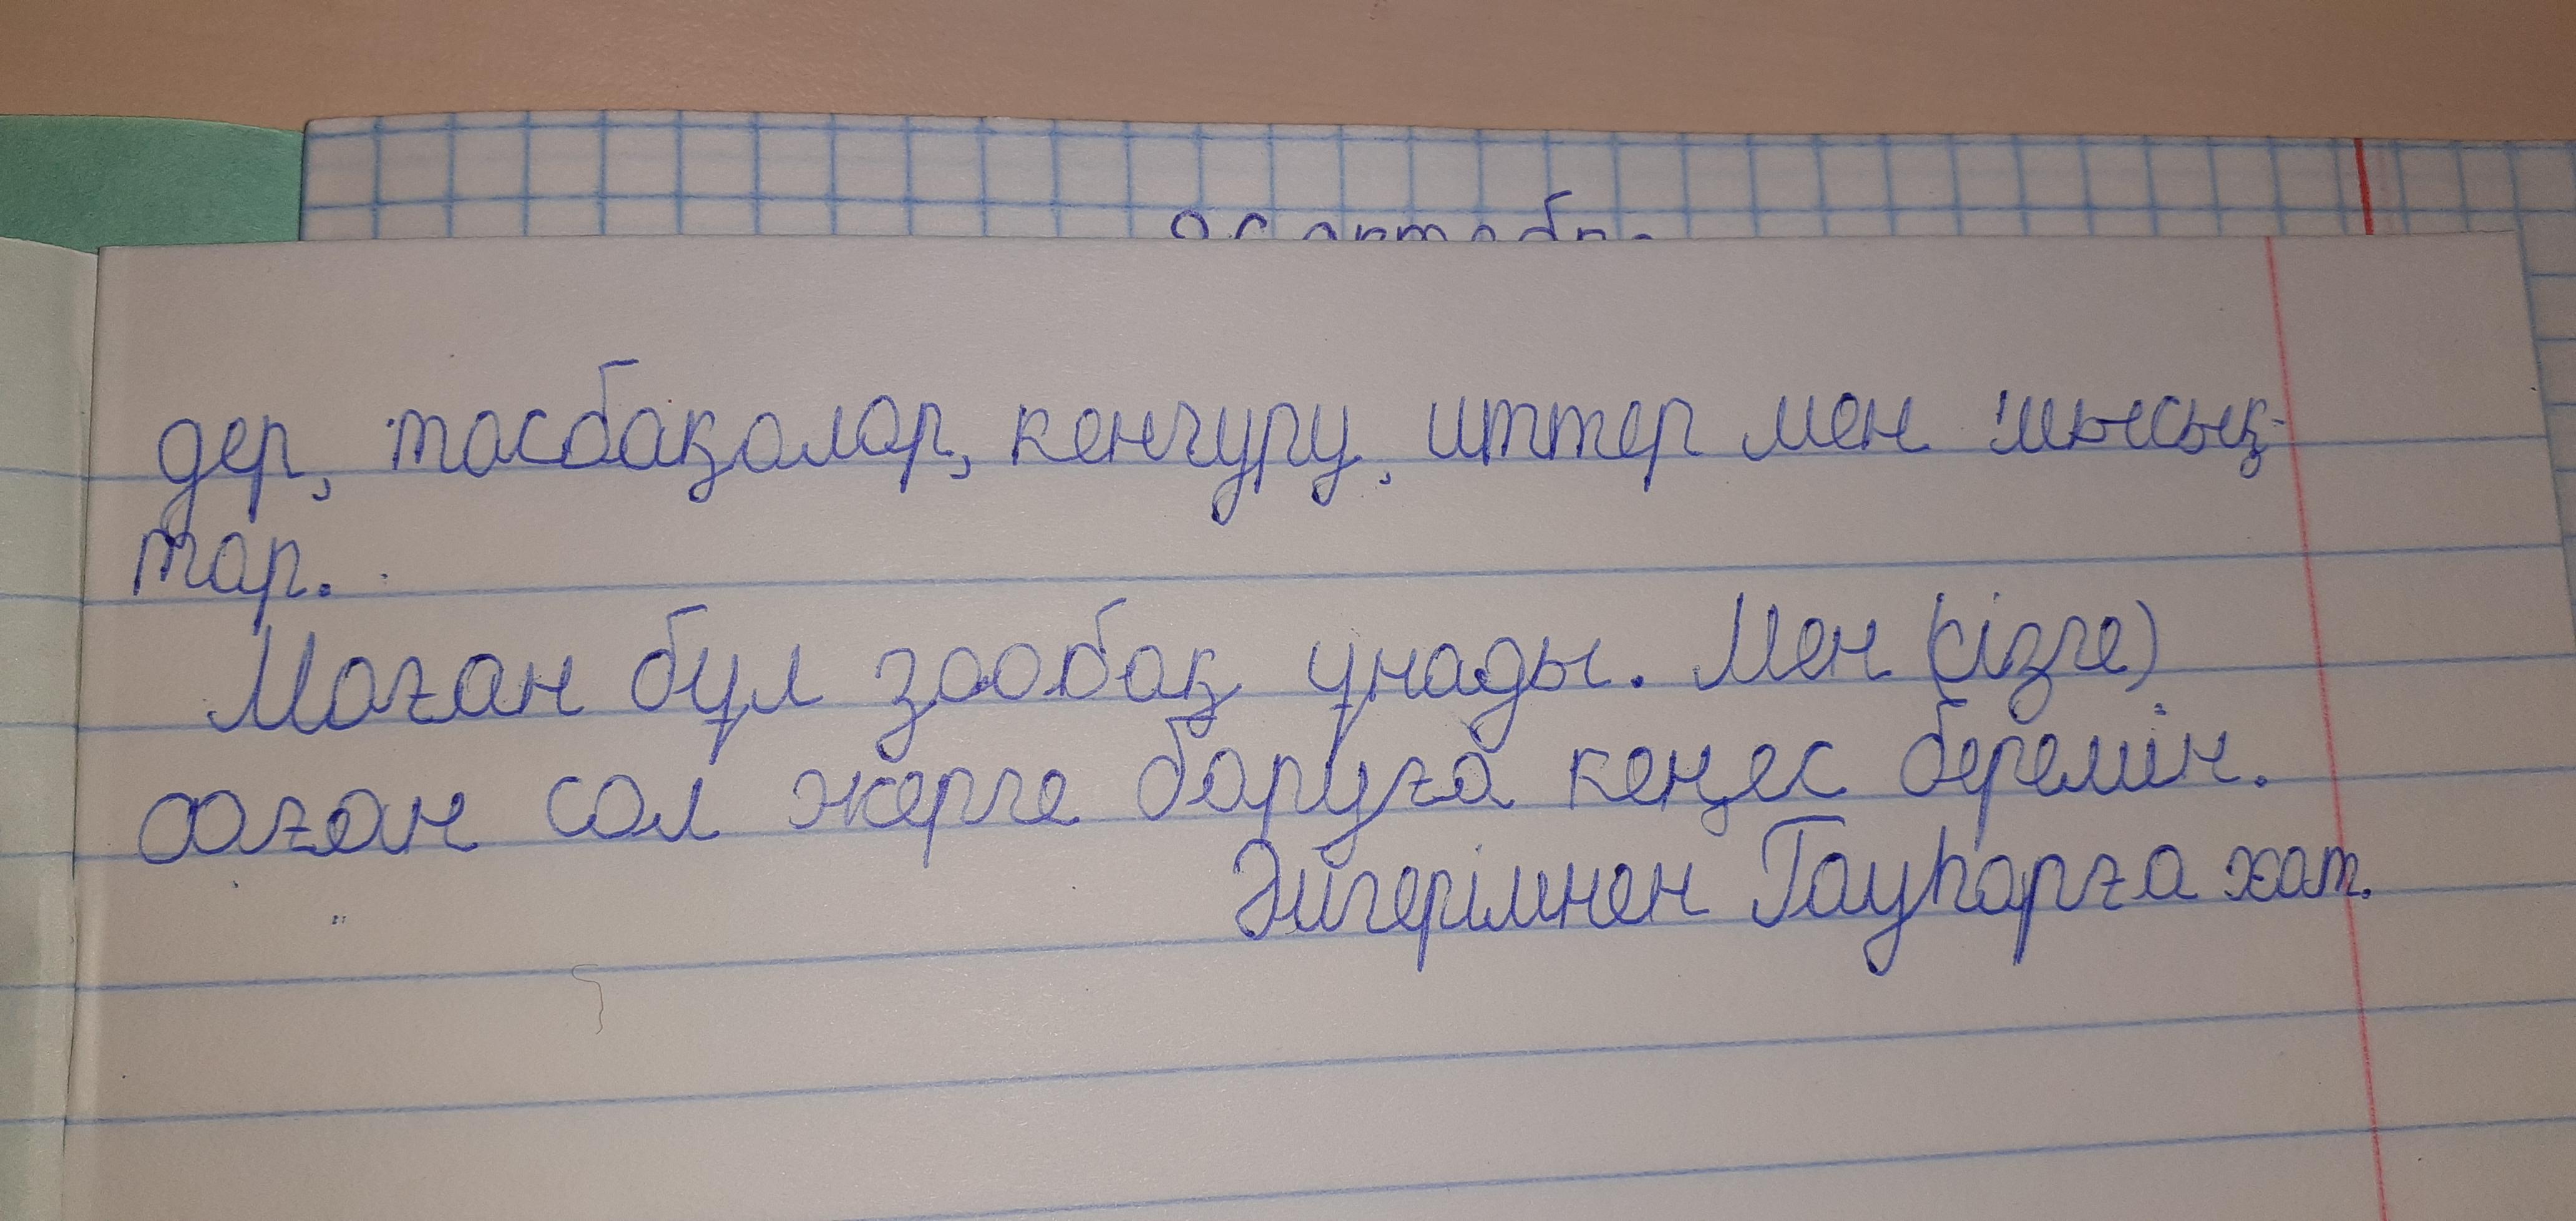 дер, тасбақалар, кенгуру, иттер мен мысық-
тар.
Маған бұл зообақ ұнады. Мен (сізге)
саған сол жерге баруға кеңес беремін.
Әйгерімнен Гауһарға хат.